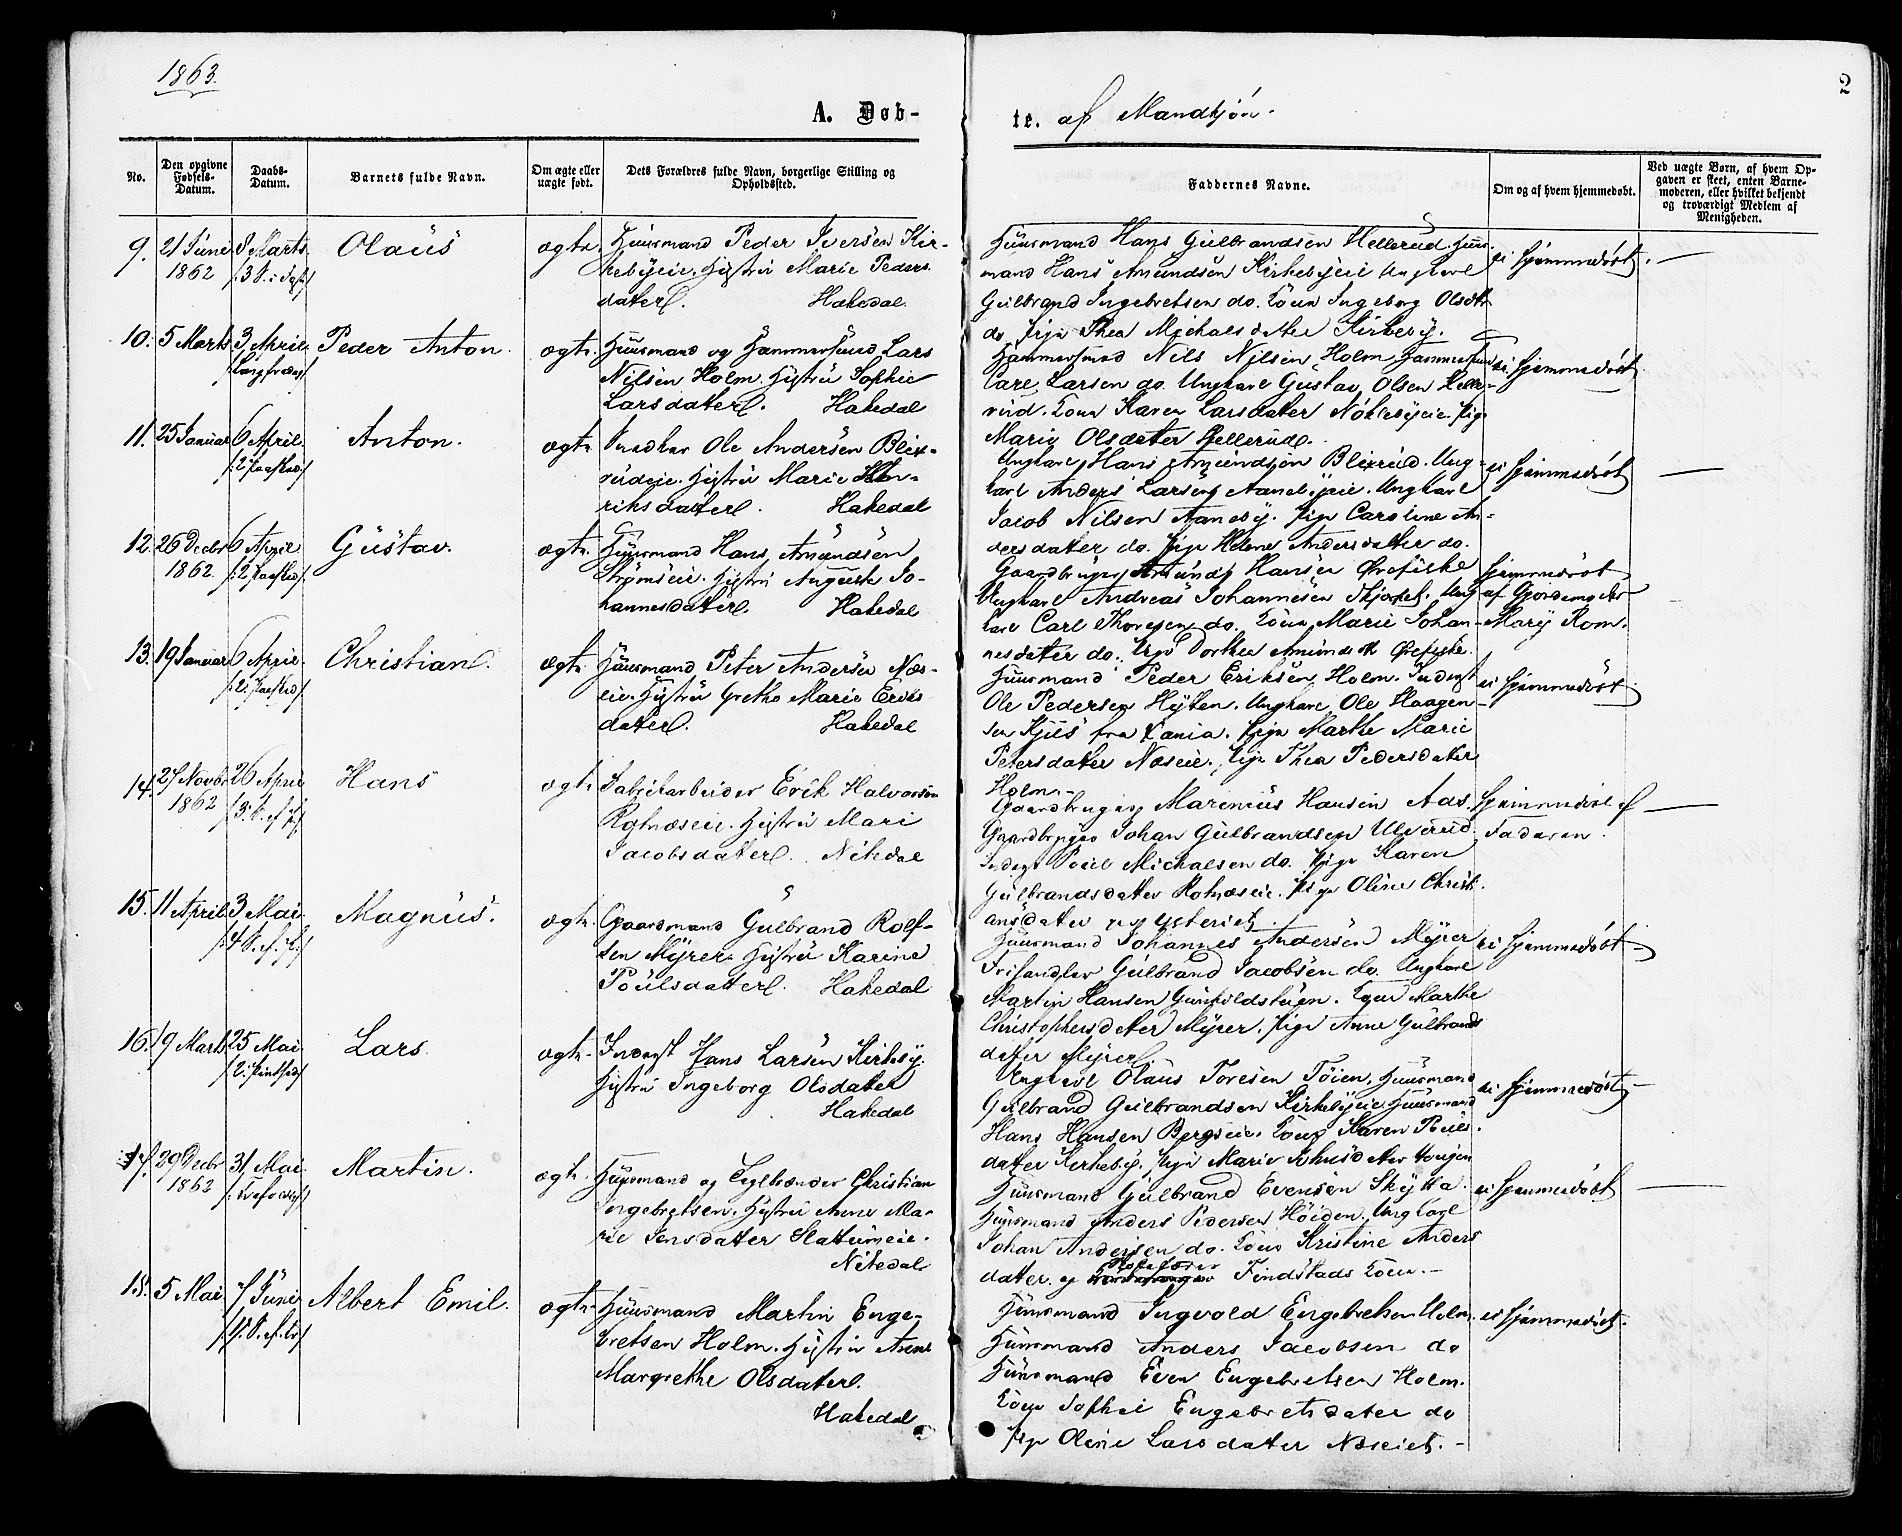 1863.
2
A. Døb-
te. af Mandkjøn.
No.
Den opgivne Fødsels-Datum.
Daabs-Datum.
Barnets fulde Navn.
Om ægte eller uægte født.
Dets Forældres fulde Navn, borgerlige Stilling og Opholdssted.
Faddernes Navne.
Om og af hvem hjemmedøbt.
Ved uægte Børn, af hvem Opgaven er skeet, enten Barnemoderen, eller hvilket bekjendt og troværdigt Medlem af Menigheden.
9. 21 Juni 1862
8 Marts
/: 3 S. i Faste :/
Olaus
ægte
Huusmand Peder Iversen Kir-
kebyeie. Hustru Marie Peders
datter.
Hakedal
Huusmand Hans Gulbrandsen Hellerud. Huus-
mand Hans Amundsen Kirkebyeie Ungkarl
Gulbrand Ingebretsen do. Kone Ingeborg Olsdtr
do Pige Thea Michalsdatter Kirkeby.
ei hjemmedøbt.
10. 5 Marts
3 April
/: Langfredag :/
Peder Anton.
ægte.
Huusmand og Hammersmed Lars
Nilsen Holm. Hustru Sophie
Larsdatter.
Hakedal
Hammersmed Nils Nilsen Holm. Hammersmed
Carl Larsen do. Ungkarl Gustav Olsen Helle-
rud. Kone Karen Larsdatter Nöklebyeie. Pige
Marie Olsdatter Hellerud.
ei hjemmedøbt.
11. 25 Januar
6 April.
/: 2 Paasked. :/
Anton.
ægte
Snedker Ole Andersen Blix-
rudeie. Hustru Marie Hen-
riksdatter.
Hakedal
Ungkarl Hans Amundsen Blixrud. Ung-
karl Anders Larsen Aanebyeie. Ungkarl
Jacob Nilsen Aaneby. Pige Caroline An-
dersdatter do. Pige Helene Andersdatter do.
ei hjemmedøbt
12. 26 Decbr 1862
6 April
/: 2 Paaskd :/
Gustav.
ægte.
Huusmand Hans Amundsen
Strømseie. Hustru Auguste Jo-
hannesdatter.
Hakedal
Gaardbruger Amund Hansen Ørefiske
Ungkarl Andreas Johannesen Skjærset. Ung
karl Carl Thoresen do. Kone Marie Johan-
nesdatter do. Pige Dorthea Amundsdtr Ørefiske.
hjemmedøbt
af Gjordemoder
Mary Rom.
13. 19 Januar
6 April
/: 2 Paaskd :/
Christian.
ægte
Huusmand Peter Andersen Næs-
eie. Hustru Grethe Marie Eriks
datter.
Hakedal
Huusmand Peder Eriksen Holm. Inderst
Ole Pedersen Hytten. Ungkarl Ole Haagen-
sen Kjuus fra Rania. Pige Marthe Marie
Petersdatter Næseie. Pige Thea Pedersdatter
Holm.
ei hjemmedøbt.
14. 27 Novbr 1862
26 April
/: 3. S. ef. P. :/
Hans
ægte
Fabrikarbeider Erik Halvorsen
Rotnæseie. Hustru Mari
Jacobsdatter.
Nitedal
Gaardbruger Marenius Hansen Aas.
Gaardbruger Johan Gulbrandsen Ulverud.
Inderst Poul Michalsen do. Pige Karen
Gulbrandsdatter Rotnæseie. Pige Oline Christi-
ansdatter
hjemmedøbt af
Faderen.
15. 11 April
3 Mai.
/: 4 S. ef. P. :/
Magnus.
ægte.
Gaardmand Gulbrand Rolf-
sen Myrer. Hustru Karine
Poulsdatter.
Hakedal
Huusmand Johannes Andersen Myrer
Frihandler Gulbrand Jacobsen do. Ungkarl
Martin Hansen Gunhildstuen. Kone Marthe
Christophersdatter Myrer. Pige Anne Gulbrands
datter Myrer.
ei hjemmedøbt
16. 19 Marts
25 Mai.
/: 2: Pintsed. :/
Lars
ægte.
Inderst Hans Larsen Kirkeby.
Hustru Ingeborg Olsdatter
Hakedal
Ungkarl Olaus Toresen Töien. Huusmand
Gulbrand Gulbrandsen Kirkebyeie. Huusmand
Hans Hansen Bergseie. Kone Karen Pouls-
datter Kirkeby. Pige Marie Johnsdatter Haugen
ei hjemmedøbt
17. 29 Decbr 1862
31 Mai.
/: Trefoldigh :/
Martin.
ægte.
Huusmand og Teglbrænder Christian
Ingebretsen. Hustru Anne Ma-
rie Jensdatter Slatumeie.
Nitedal
Huusmand Gulbrand Evensen Skytta.
Huusmand Anders Pedersen Höiden. Ungkarl
Johan Andersen do. Kone Kristine Anders
datter og Findstads Kone.
ei hjemmedøbt
18. 5 Mai.
7 Juni
/: 1. S. ef. Tr. :/
Albert Emil.
ægte
Huusmand Martin Enge-
bretsen Holm. Hustru Anne
Margrethe Olsdatter.
Hakedal
Huusmand Ingvold Engebretsen Holm.
Huusmand Anders Jacobsen do
Huusmand Even Engebretsen Holm.
Kone Sophie Engebretsdatter do
Pige Oline Larsdatter Næseiet.
ei hjemmedøbt.